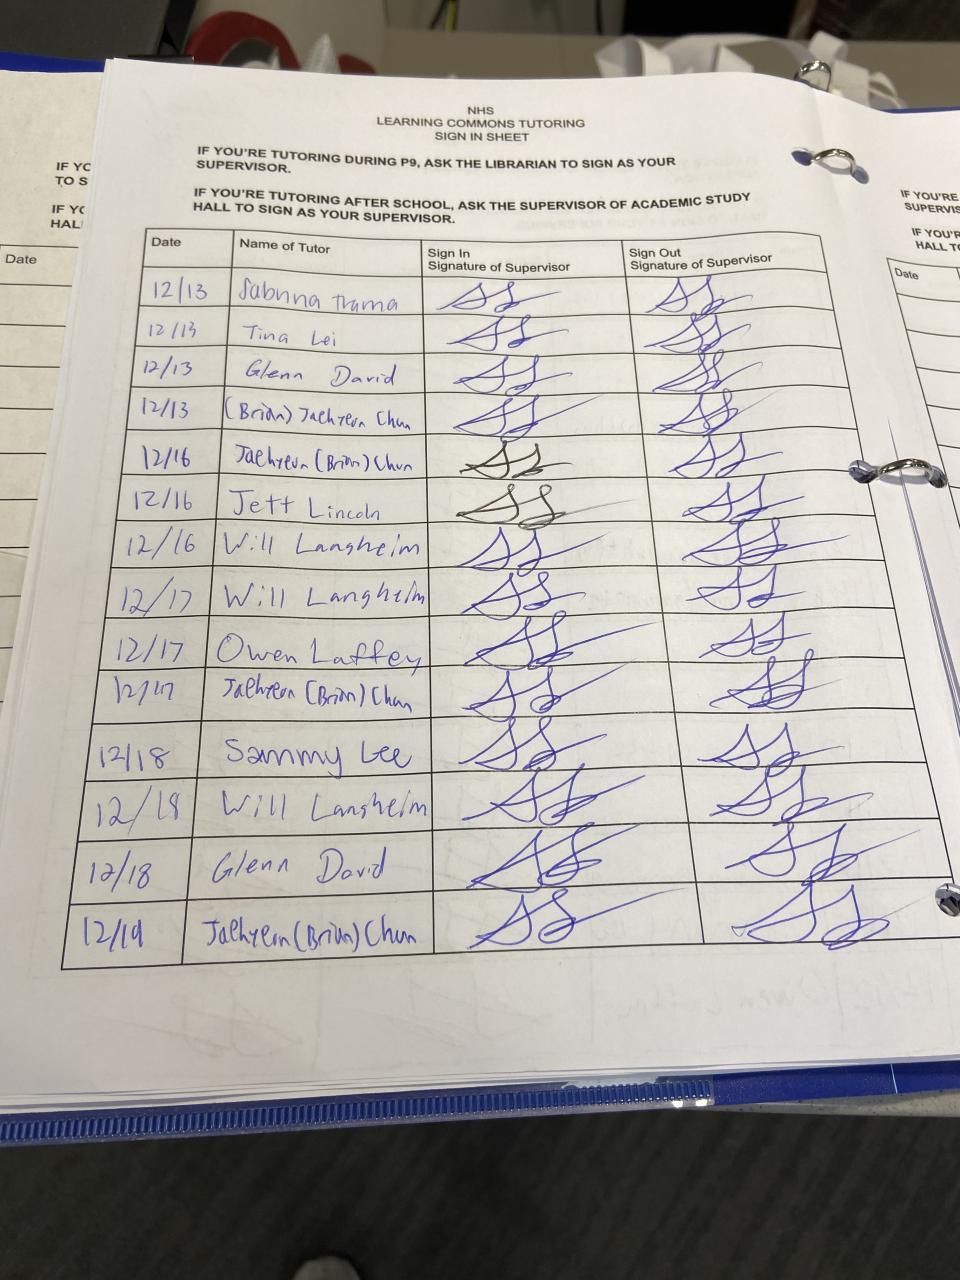 NHS
LEARNING COMMONS TUTORING
SIGN IN SHEET
IF YOU'RE TUTORING DURING P9, ASK THE LIBRARIAN TO SIGN AS YOUR
SUPERVISOR.
IF YOU'RE TUTORING AFTER SCHOOL, ASK THE SUPERVISOR OF ACADEMIC STUDY
HALL TO SIGN AS YOUR SUPERVISOR.
Date Name of Tutor Sign In Signature of Supervisor Sign Out Signature of Supervisor
12/13 Sabrina trama
12/13 Tina Lei
12/13 Glenn David
12/13 (Brian) Jaehyeon Chun
12/16 Jaehyeon (Brian) Chun
12/16 Jett Lincoln
12/16 Will Langheim
12/17 Will Langheim
12/17 Owen Laffey
12/17 Jaehyeon (Brian) Chun
12/18 Sammy Lee
12/18 Will Langheim
12/18 Glenn David
12/19 Jaehyeon (Brian) Chun
IF YO
TO S
IF YO
HAL
Date
IF YOU'RE
SUPERVIS
IF YOU'R
HALL TO
Date